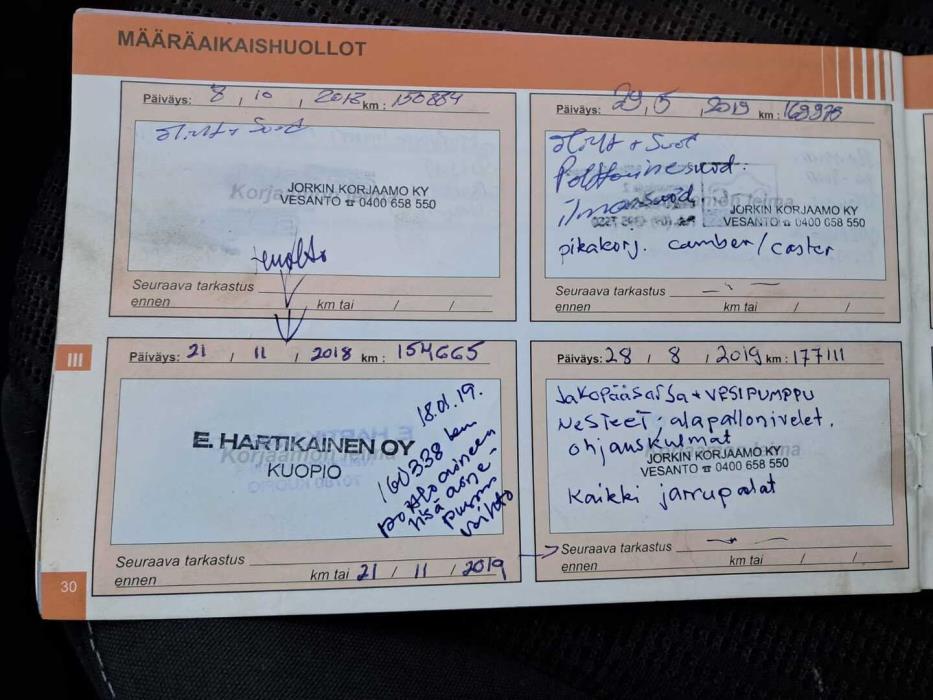 MÄÄRÄAIKAISHUOLLOT
Päiväys: 8 , 10 , 2018 km : 150884
Öljyt + Suod
JORKIN KORJAAMO KY
VESANTO ☎ 0400 658 550
Seuraava tarkastus
ennen km tai / /
Päiväys: 29,5 , 2019 km : 169978
Öljyt + Suod
Polttoainesuod.
ilmansuod,
JORKIN KORJAAMO KY
VESANTO ☎ 0400 658 550
pikakorj. camber/caster
Seuraava tarkastus
ennen km tai / /
III
Päiväys: 21 / 11 / 2018 km : 154665
18.01.19.
160338 km
polttoaineen
lisäaine-
pussin
vaihto
E. HARTIKAINEN OY
KUOPIO
Seuraava tarkastus
ennen km tai 21 / 11 / 2019
Päiväys: 28 / 8 / 2019 km : 177111
Jakopääsarja + VESIPUMPPU
NESTEET; alapallonivelet.
ohjauskulmat
JORKIN KORJAAMO KY
VESANTO ☎ 0400 658 550
Kaikki jarrupalat
Seuraava tarkastus
ennen km tai / /
30